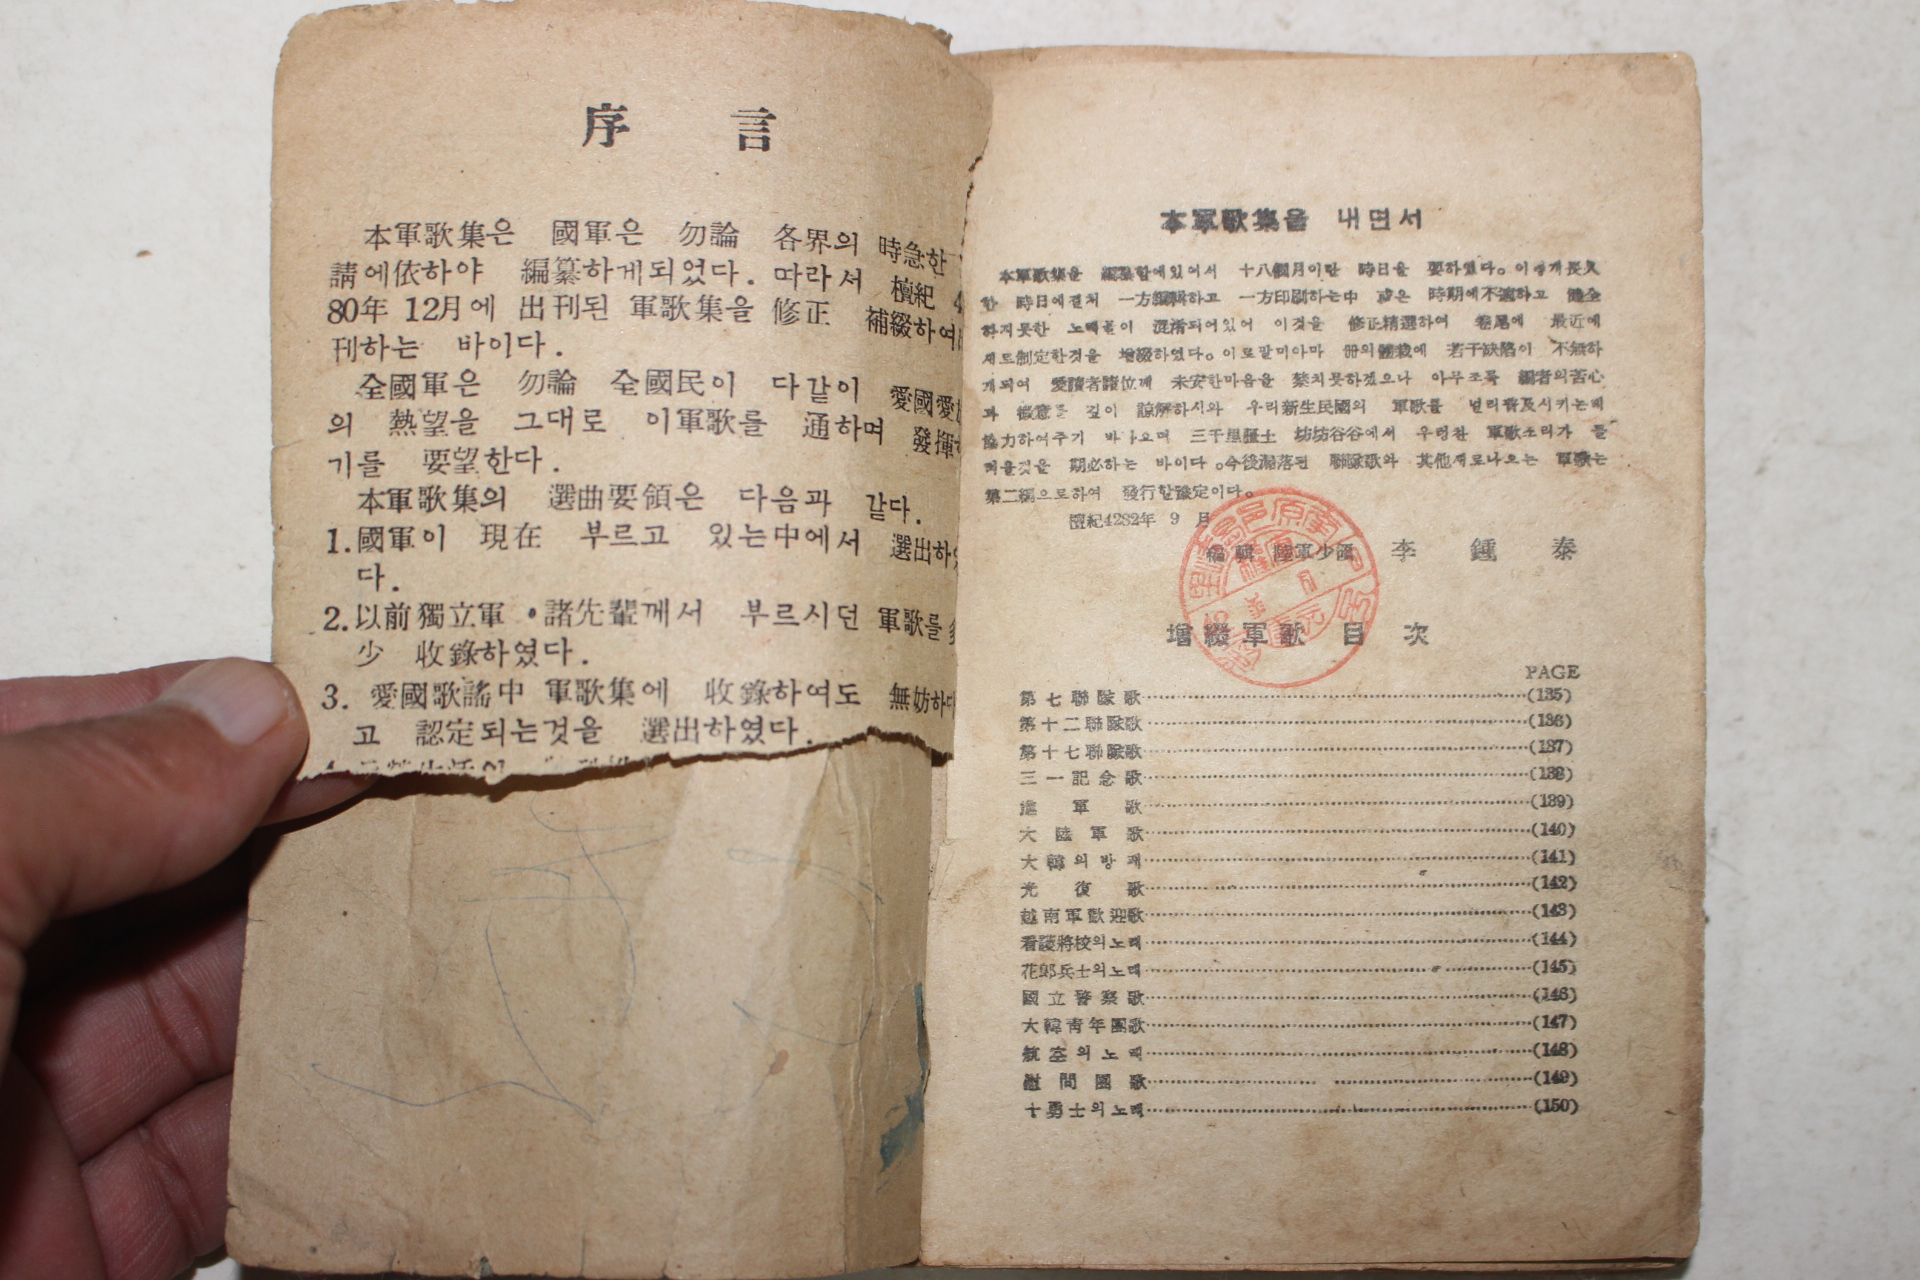 序 言
本軍歌集은 國軍은 勿論 各界의 時急한
請에依하야 編纂하게되었다. 따라서 檀紀 4
80年 12月에 出刊된 軍歌集을 修正 補綴하여
刊하는 바이다.
全國軍은 勿論 全國民이 다같이 愛國愛
의 熱望을 그대로 이軍歌를 通하며 發揮하
기를 要望한다.
本軍歌集의 選曲要領은 다음과 같다.
1. 國軍이 現在 부르고 있는中에서 選出하였
다.
2. 以前獨立軍 • 諸先輩께서 부르시던 軍歌를 多
少 收錄하였다.
3. 愛國歌謠中 軍歌集에 收錄하여도 無妨하다
고 認定되는것을 選出하였다.
本軍歌集을 내면서
本軍歌集을 編纂함에있어서 十八個月이란 時日을 要하였다。이렇게長久
한 時日에걸처 一方編輯하고 一方印刷하는中 或은 時期에不適하고 健全
하지못한 노래들이 混淆되어있어 이것을 修正精選하여 卷尾에 最近에
새로制定한것을 增綴하였다。이로말미아마 冊의體裁에 若干缺陷이 不無하
게되여 愛讀者諸位께 未安한마음을 禁치못하겠으나 아무조록 編者의苦心
과 微意를 깊이 諒解하시와 우리新生民國의 軍歌를 널리普及시키는데
協力하여주기 바라오며 三千里疆土 坊坊谷谷에서 우렁찬 軍歌소리가 들
려올것을 期必하는 바이다。今後漏落된 聯隊歌와 其他새로나오는 軍歌는
第二編으로하여 發行할豫定이다。
檀紀4282年 9 月
編 輯 陸軍少領 李 鍾 泰
增綴軍歌 目 次
PAGE
第七聯隊歌……(135)
第十二聯隊歌……(136)
第十七聯隊歌……(137)
三一記念歌……(138)
進軍歌……(139)
大陸軍歌……(140)
大韓의방패……(141)
光復歌……(142)
越南軍歡迎歌……(143)
看護將校의노래……(144)
花郞兵士의노래……(145)
國立警察歌……(146)
大韓靑年團歌……(147)
航空의노래……(148)
慰問團歌……(149)
十勇士의노래……(150)